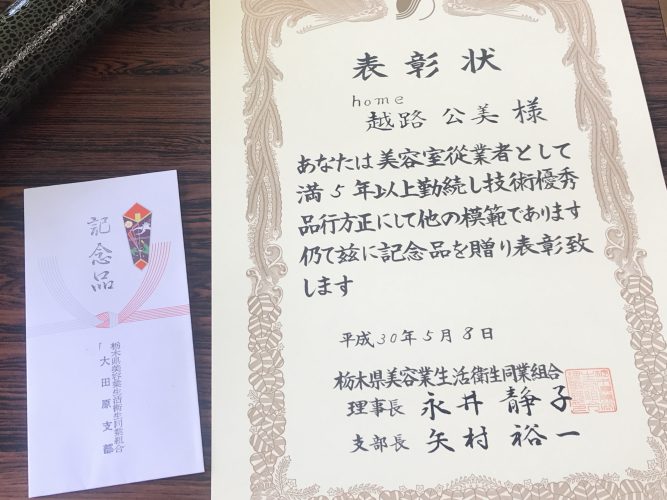 表彰状
home
越路 公美 様
あなたは美容室従業者として
満5年以上勤続し技術優秀
品行方正にして他の模範であります
仍て玆に記念品を贈り表彰致
します
平成30年5月8日
栃木県美容業生活衛生同業組合
理事長 永井 静子
支部長 矢村 裕一
記念品
栃木県美容業生活衛生同業組合
大田原支部